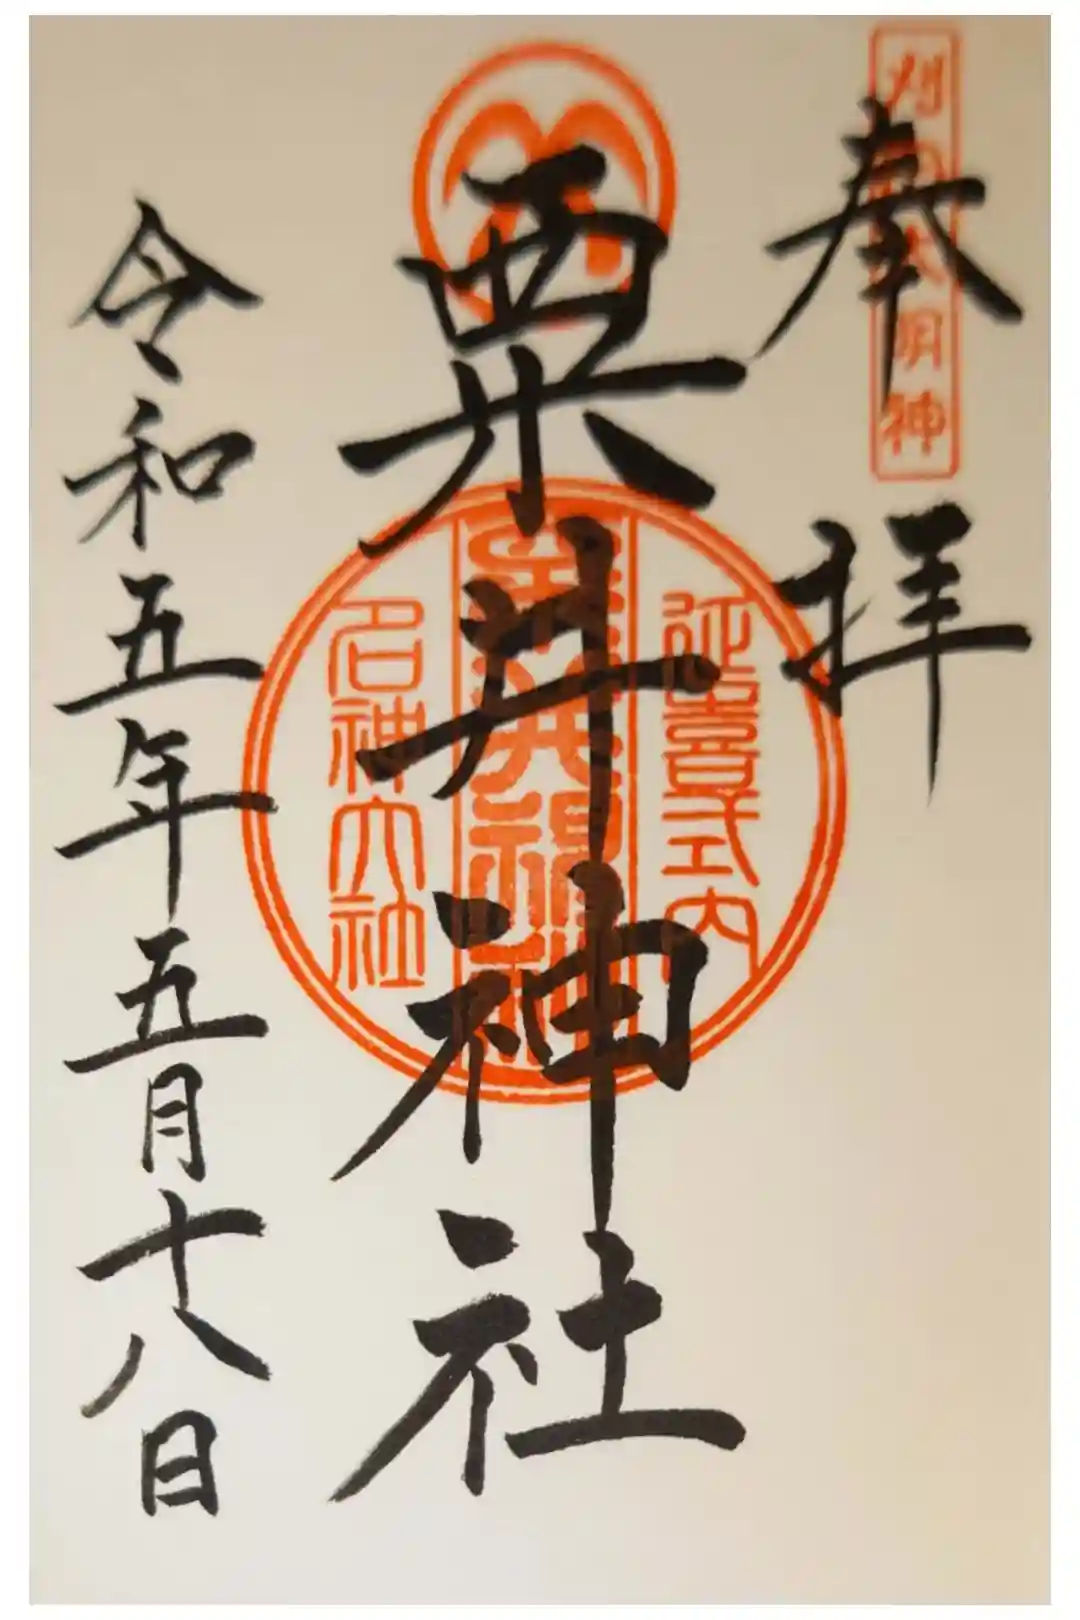 奉拝
刈田大明神
粟井神社
延喜式内
粟井神社
名神大社
令和五年五月十八日